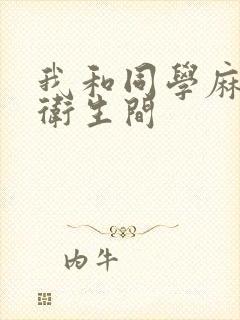 我和同學麻
衛生間
内牛